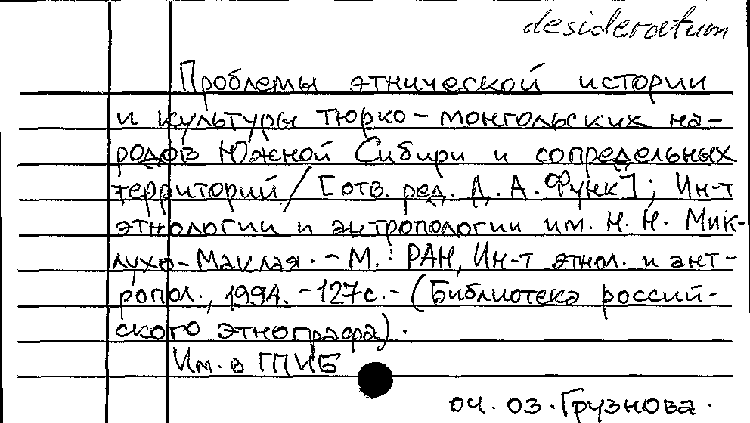 desideratum
Проблемы этнической истории
и культуры тюрко-монгольских на-
родов Южной Сибири и сопредельных
территорий / [отв. ред. Д. А. Функ]; Ин-т
этнологии и антропологии им. Н. Н. Мик-
лухо-Маклая. - М.: РАН, Ин-т этнол. и ант-
ропол., 1994. - 127с. - (Библиотека россий-
ского этнографа).
Им. в ГПИБ
04. 03. Грузнова.